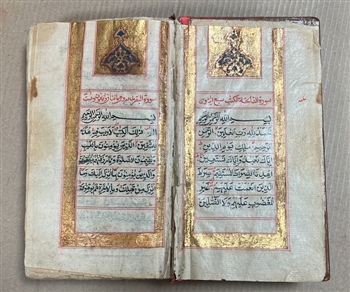 سورة الفاتحة الكتاب سبع ايات
بسم الله الرحمن الرحيم
الحمد لله رب العلمين الرحمن
الرحيم ملك يوم الدين اياك
نعبد واياك نستعين اهدنا
الصراط المستقيم صراط
الذين انعمت عليهم غير
المغضوب عليهم ولا الضالين
بسم الله الرحمن الرحيم
الم ذلك الكتب لا ريب فيه هدى
للمتقين الذين يؤمنون بالغيب
ويقيمون الصلوة ومما رزقنهم ينفقون
والذين يؤمنون بما انزل اليك وما
انزل من قبلك وبالاخرة هم يوقنون